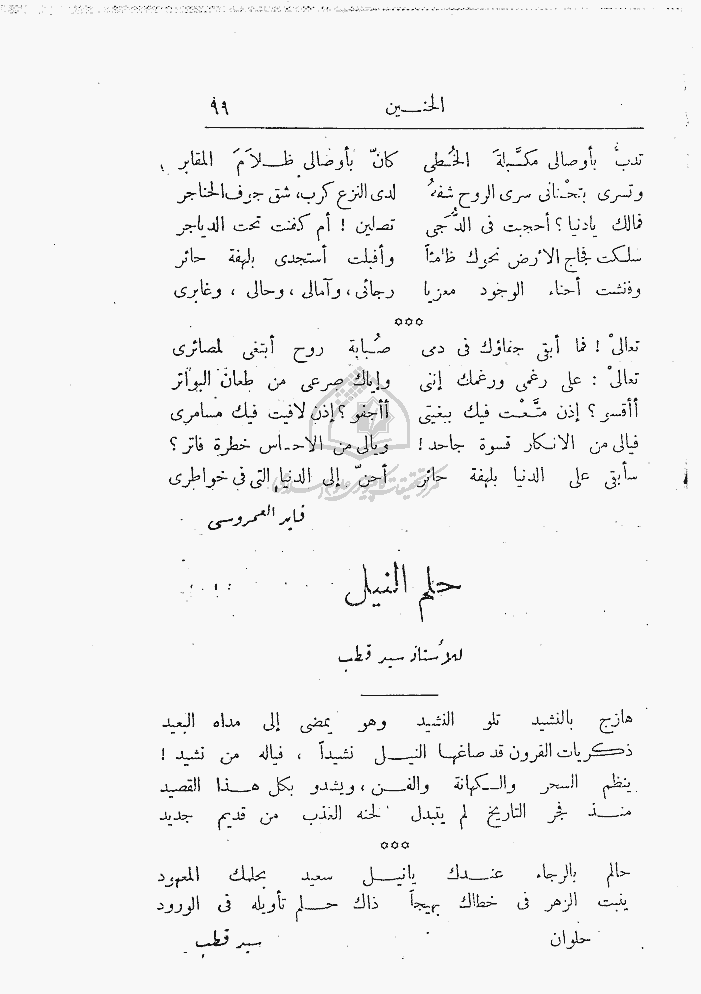 الحنين ٩٩
تدبُّ بأوصالى مكبَّلة الخُطى كانّ بأوصالى ظلامَ المقابر
وتسرى بتحْنانى سرى الروح شفهُ لدى النزع كرب، شق جوف الحناجر
فمالك يادنيا؟ أحجبت فى الدُّجى تصلين ! أم كفنت تحت الدياجر
سلكت فجاج الأرض نحوك ظامئاً وأقبلت أستجدى بلهفة حائر
وفتشت أحناء الوجود معزيا رجائى، وآمالى، وحالى، وغابرى
٥٥٥
تعالىْ ! فما أبقى جفاؤك فى دمى صُبابة روح أبتغى لمصائرى
تعالىْ : على رغمى ورغمك إننى وإياك صرعى من طعان البواتر
أأقسو؟ إذن متَّعت فيك ببغيتى أأجفو؟ إذن لاقيت فيك مسامرى
فيالى من الانكار قسوة جاحد! ويالى من الاحساس خطرة فاتر؟
سأبقى على الدنيا بلهفة حائر أحنّ إلى الدنيا التى فى خواطرى
فايد العمروسى
حلم النيل
للأستاذ سيد قطب
هازج بالنشيد تلو النشيد وهو يمضى إلى مداه البعيد
ذكريات القرون قد صاغها النيل نشيداً ، فياله من نشيد !
ينظم السحر والكهانة والفن، ويشدو بكل هذا القصيد
منذ فجر التاريخ لم يتبدل لحنه العذب من قديم جديد
٥٥٥
حالم بالرجاء عندك يانيل سعيد بحلمك المعهود
ينبت الزهر فى خطاك بهيجاً ذاك حلم تأويله فى الورود
حلوان سيد قطب